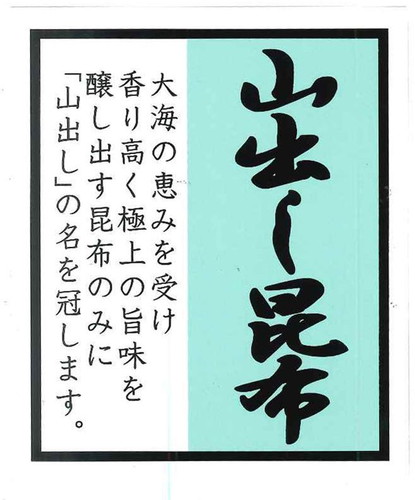 山出し昆布
大海の恵みを受け
香り高く極上の旨味を
醸し出す昆布のみに
「山出し」の名を冠します。